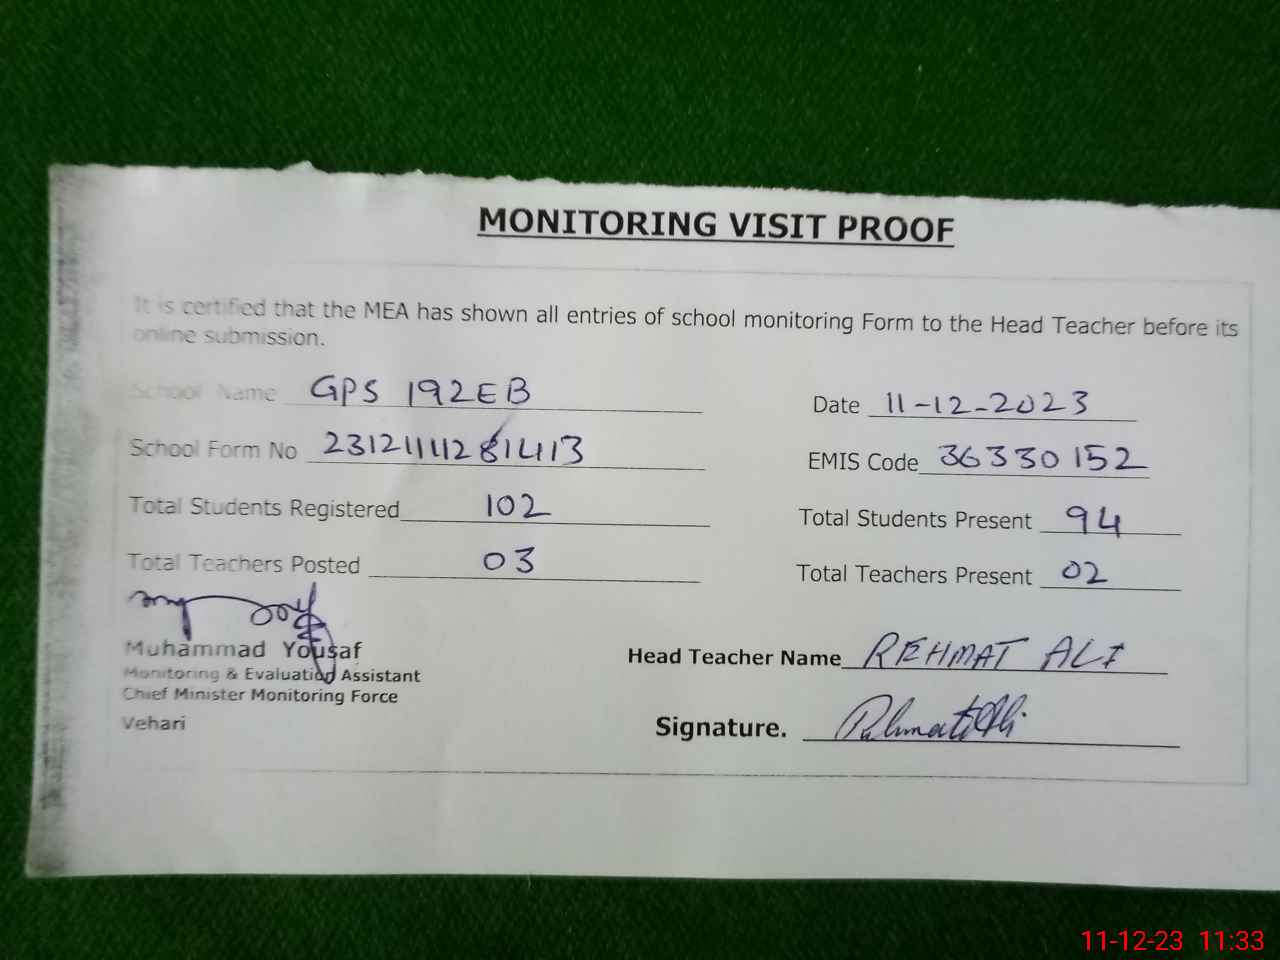 MONITORING VISIT PROOF
It is certified that the MEA has shown all entries of school monitoring Form to the Head Teacher before its
online submission.
School Name GPS 192EB Date 11-12-2023
School Form No 23121111281413 EMIS Code 36330152
Total Students Registered 102 Total Students Present 94
Total Teachers Posted 03 Total Teachers Present 02
Muhammad Yousaf
Monitoring & Evaluation Assistant
Chief Minister Monitoring Force
Vehari
Head Teacher Name REHMAT ALI
Signature. Rehmat Ali
11-12-23 11:33